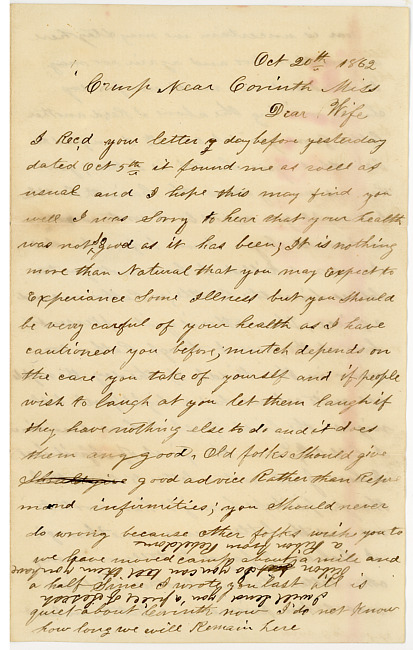 Oct 20th 1862
Camp Near Corinth Miss
Dear Wife
I Recd your letter day before yesterday
dated Oct 5th it found me as well as
usual and I hope this may find you
well I was Sorry to hear that your health
was not as good as it has been; It is nothing
more than Natural that you may Expect to
Experiance Some Illness but you should
be very careful of your health as I have
cautioned you before; mutch depends on
the care you take of yourself and if people
wish to laugh at you let them laugh if
they have nothing else to do and it does
them any good, Old folks Should give
good advice Rather than
infirmities; you should never
do wrong because other folks wish you to
we have moved camp about a mile and
a half Since I wrote you last all is
quiet about Corinth now I do not Know
how long we will Remain here
I will send you a piece of